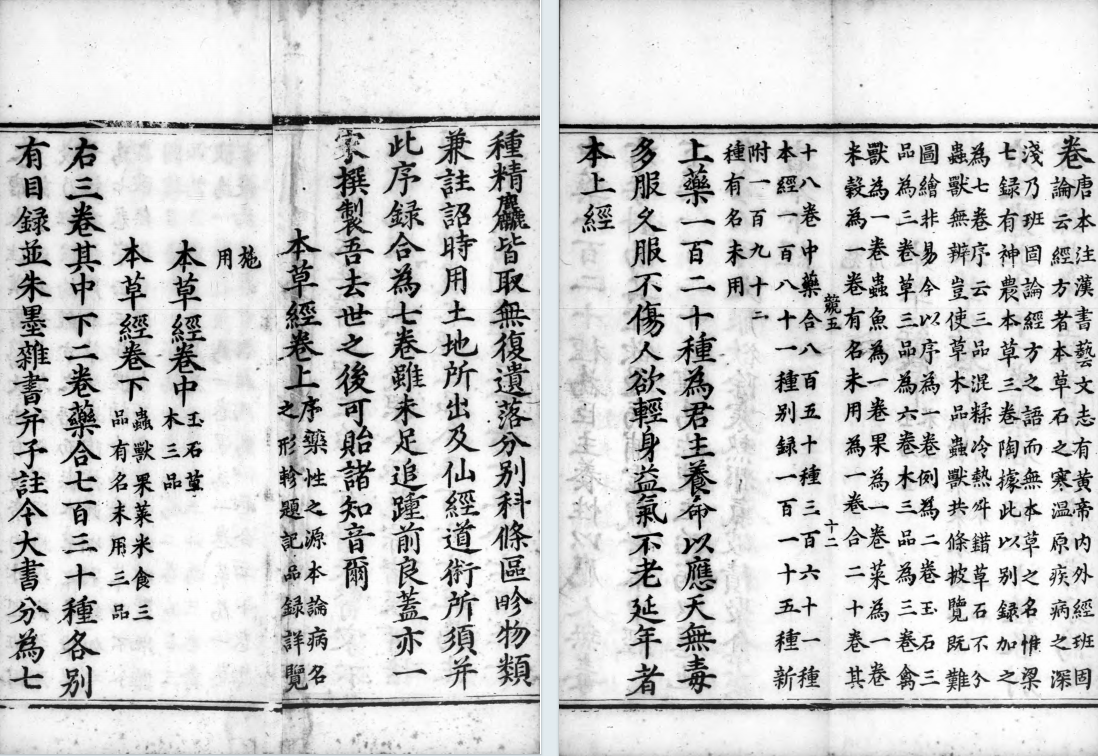 種精麤皆取無復遺落分别科條區畛物類
兼註詔時用土地所出及仙經道術所須并
此序録合為七卷雖未足追踵前良蓋亦一
家撰製吾去世之後可貽諸知音爾
本草經卷上序藥性之源本論病名
之形軫題記品録詳覽
施
用
本草經卷中玉石草
木三品
本草經卷下蟲獸果菜米食三
品有名未用三品
右三卷其中下二卷藥合七百三十種各别
有目録並朱墨雜書并子註今大書分為七
卷唐本注漢書藝文志有黄帝内外經班固
論云經方者本草石之寒温原疾病之深
淺乃班固論經方之語而無本草之名惟梁
七録有神農本草三卷陶據此以别録加之
為七卷序云三品混糅冷熱舛錯草石不分
蟲獸無辨豈使草木品蟲獸共條披覽既難
圖繪非易今以序為一卷例為二卷玉石三
品為三卷草三品為六卷木三品為三卷禽
獸為一卷蟲魚為一卷果為一卷菜為一卷
米穀為一卷有名未用為一卷合二十卷其
十二
十八卷中藥合八百五十種三百六十一種
本經一百八十一種别録一百一十五種新
附一百九十二
種有名未用
上藥一百二十種為君主養命以應天無毒
多服久服不傷人欲輕身益氣不老延年者
本上經